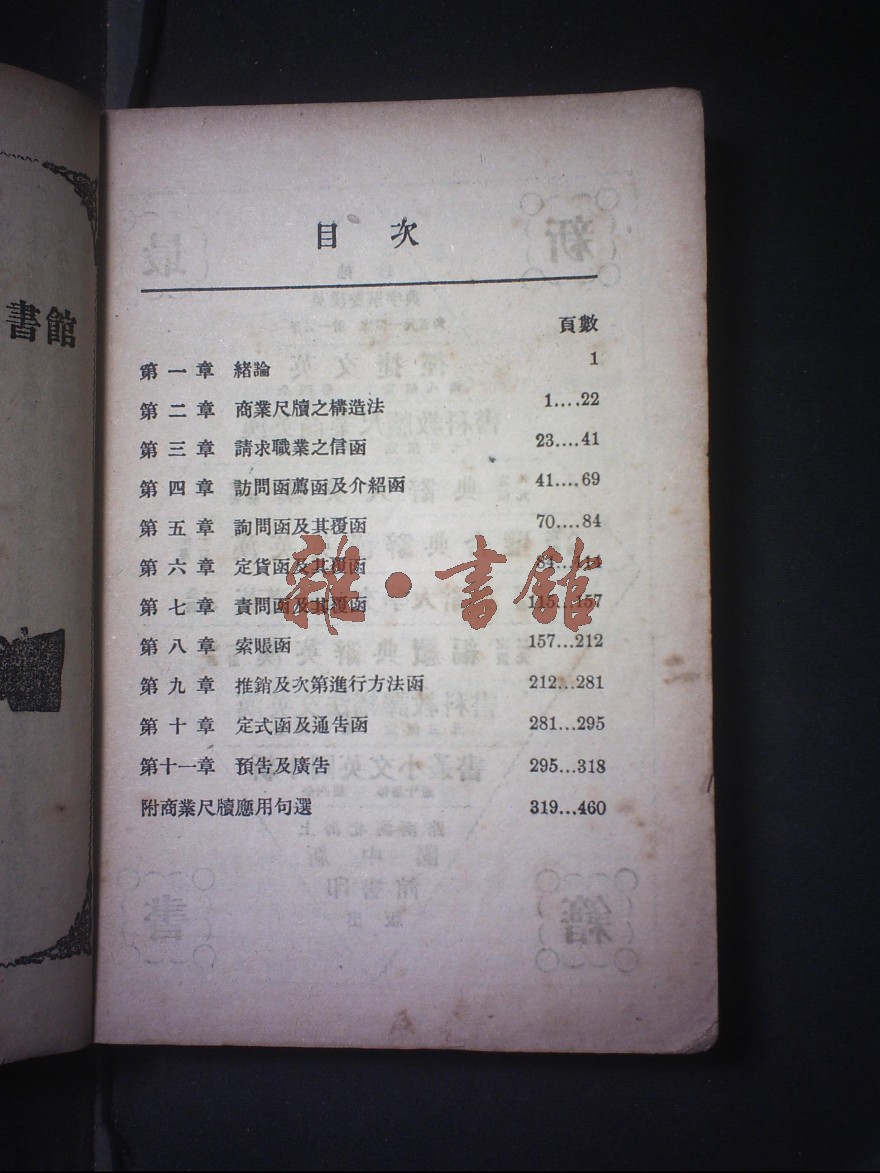 書館
目 次
頁數
第一章 緒論 1
第二章 商業尺牘之構造法 1....22
第三章 請求職業之信函 23....41
第四章 訪問函薦函及介紹函 41....69
第五章 詢問函及其覆函 70....84
第六章 定貨函及其覆函 84...114
第七章 責問函及其覆函 115...157
第八章 索賬函 157...212
第九章 推銷及次第進行方法函 212...281
第十章 定式函及通告函 281...295
第十一章 預告及廣告 295...318
附商業尺牘應用句選 319...460
雜·書館